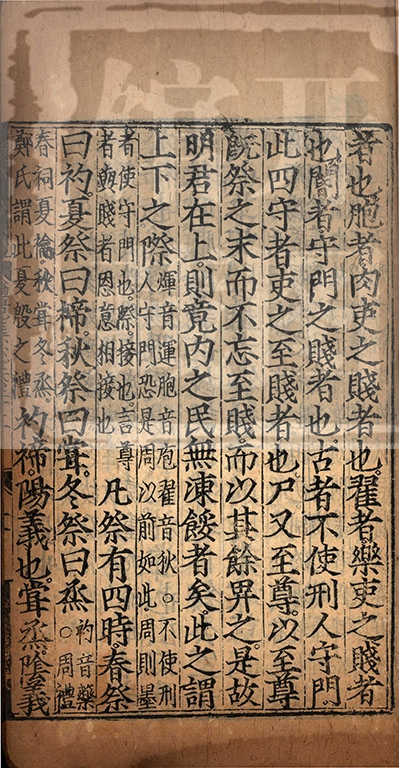 者也。胞者肉吏之賤者也。翟者樂吏之賤者
也。閽者守門之賤者也。古者不使刑人守門
此四守者吏之至賤者也尸又至尊。以至尊
旣祭之末而不忘至賤。而以其餘畀之。是故
明君在上。則竟內之民無凍餒者矣。此之謂
上下之際
煇音運胞音庖翟音狄○不使刑
人守門恐是周以前如此周則墨
者使守門也。際接也。言尊
者賤者恩意相接也
凡祭有四時。春祭
曰礿。夏祭曰禘。秋祭曰甞。冬祭曰烝
礿音藥
○周禮
春祠夏禴。秋甞冬烝
鄭氏謂此夏殷之禮
礿禘。陽義也。甞烝。陰義